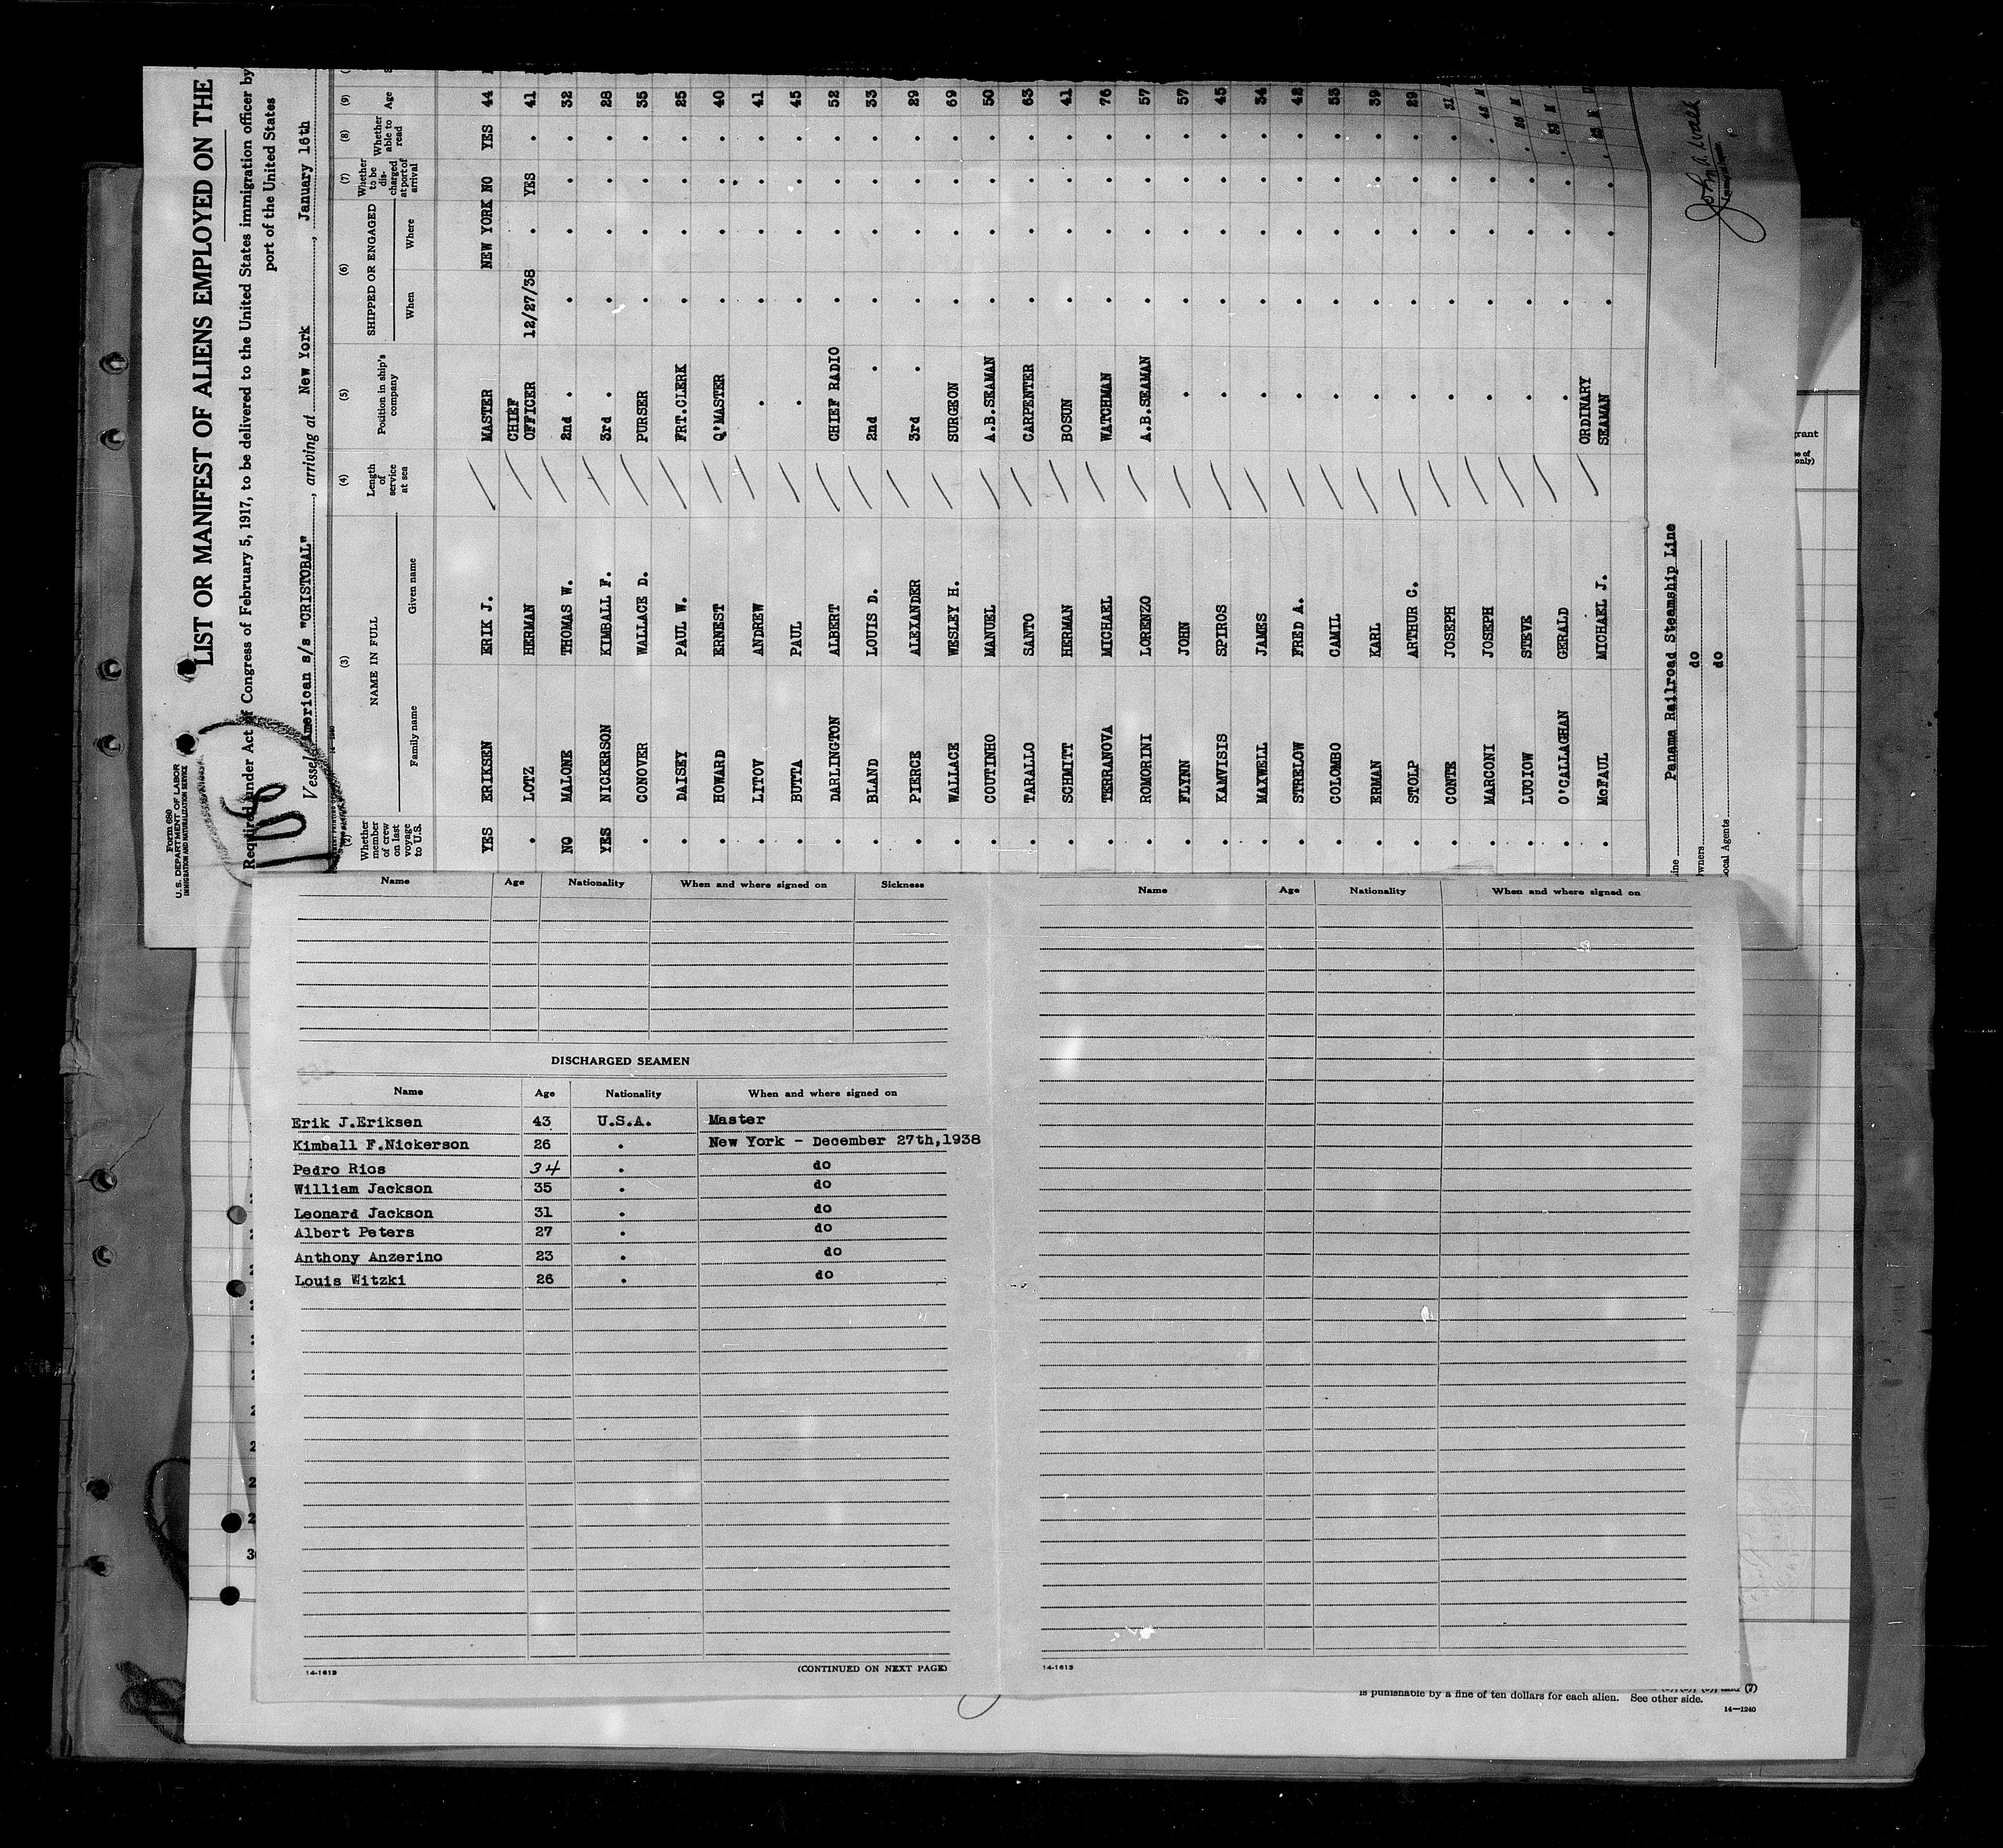 Form 686
U. S. DEPARTMENT OF LABOR
IMMIGRATION AND NATURALIZATION SERVICE
106
LIST OR MANIFEST OF ALIENS EMPLOYED ON THE
Required under Act of Congress of February 5, 1917, to be delivered to the United States immigration officer by
port of the United States
Vessel American s/s "CRISTOBAL", arriving at New York, January 16th
(2) (3) (4) (5) (6) (7) (8) (9)
Whether member of crew on last voyage to U.S. NAME IN FULL Family name Given name Length of service at sea Position in ship's company SHIPPED OR ENGAGED When Where Whether to be discharged at port of arrival Whether able to read Age
YES ERIKSEN ERIK J. MASTER NEW YORK NO YES 44
. LOTZ HERMAN CHIEF OFFICER 12/27/38 . YES . 41
NO MALONE THOMAS W. 2nd . . . . . 32
YES NICKERSON KIMBALL F. 3rd . . . . . 28
. CONOVER WALLACE D. PURSER . . . . 35
. DAISEY PAUL W. FRT.CLERK . . . . 25
. HOWARD ERNEST Q'MASTER . . . . 40
. LITOV ANDREW . . . . . 41
. BUTTA PAUL . . . . . 45
. DARLINGTON ALBERT CHIEF RADIO . . . . 52
. BLAND LOUIS D. 2nd . . . . . 33
. PIERCE ALEXANDER 3rd . . . . . 29
. WALLACE WESLEY H. SURGEON . . . . 69
. COUTINHO MANUEL A.B.SEAMAN . . . . 50
. TARALLO SANTO CARPENTER . . . . 63
. SCHMITT HERMAN BOSUN . . . . 41
. TERRANOVA MICHAEL WATCHMAN . . . . 76
. ROMORINI LORENZO A.B.SEAMAN . . . . 57
. FLYNN JOHN . . . . . 57
. KAMVISIS SPIROS . . . . . 45
. MAXWELL JAMES . . . . . 34
. STRELOW FRED A. . . . . . 42
. COLOMBO CAMIL . . . . . 53
. ERMAN KARL . . . . . 39
. STOLP ARTHUR C. . . . . . 29
. CONTE JOSEPH . . . . . 31
. MARCONI JOSEPH . . . . . 48 M
. LUGIOW STEVE . . . . . 26 M
. O'CALLAGHAN GERALD . . . . . 33 M
. McFAUL MICHAEL J. ORDINARY SEAMAN . . . .
Line Panama Railroad Steamship Line
Owners do
Local Agents do
Name Age Nationality When and where signed on Sickness
DISCHARGED SEAMEN
Name Age Nationality When and where signed on
Erik J.Eriksen 43 U.S.A. Master
Kimball F.Nickerson 26 . New York - December 27th,1938
Pedro Rios 34 . do
William Jackson 35 . do
Leonard Jackson 31 . do
Albert Peters 27 . do
Anthony Anzerino 23 . do
Louis Witzki 26 . do
14-1613
(CONTINUED ON NEXT PAGE)
Name Age Nationality When and where signed on
14-1613
is punishable by a fine of ten dollars for each alien. See other side.
14—1240